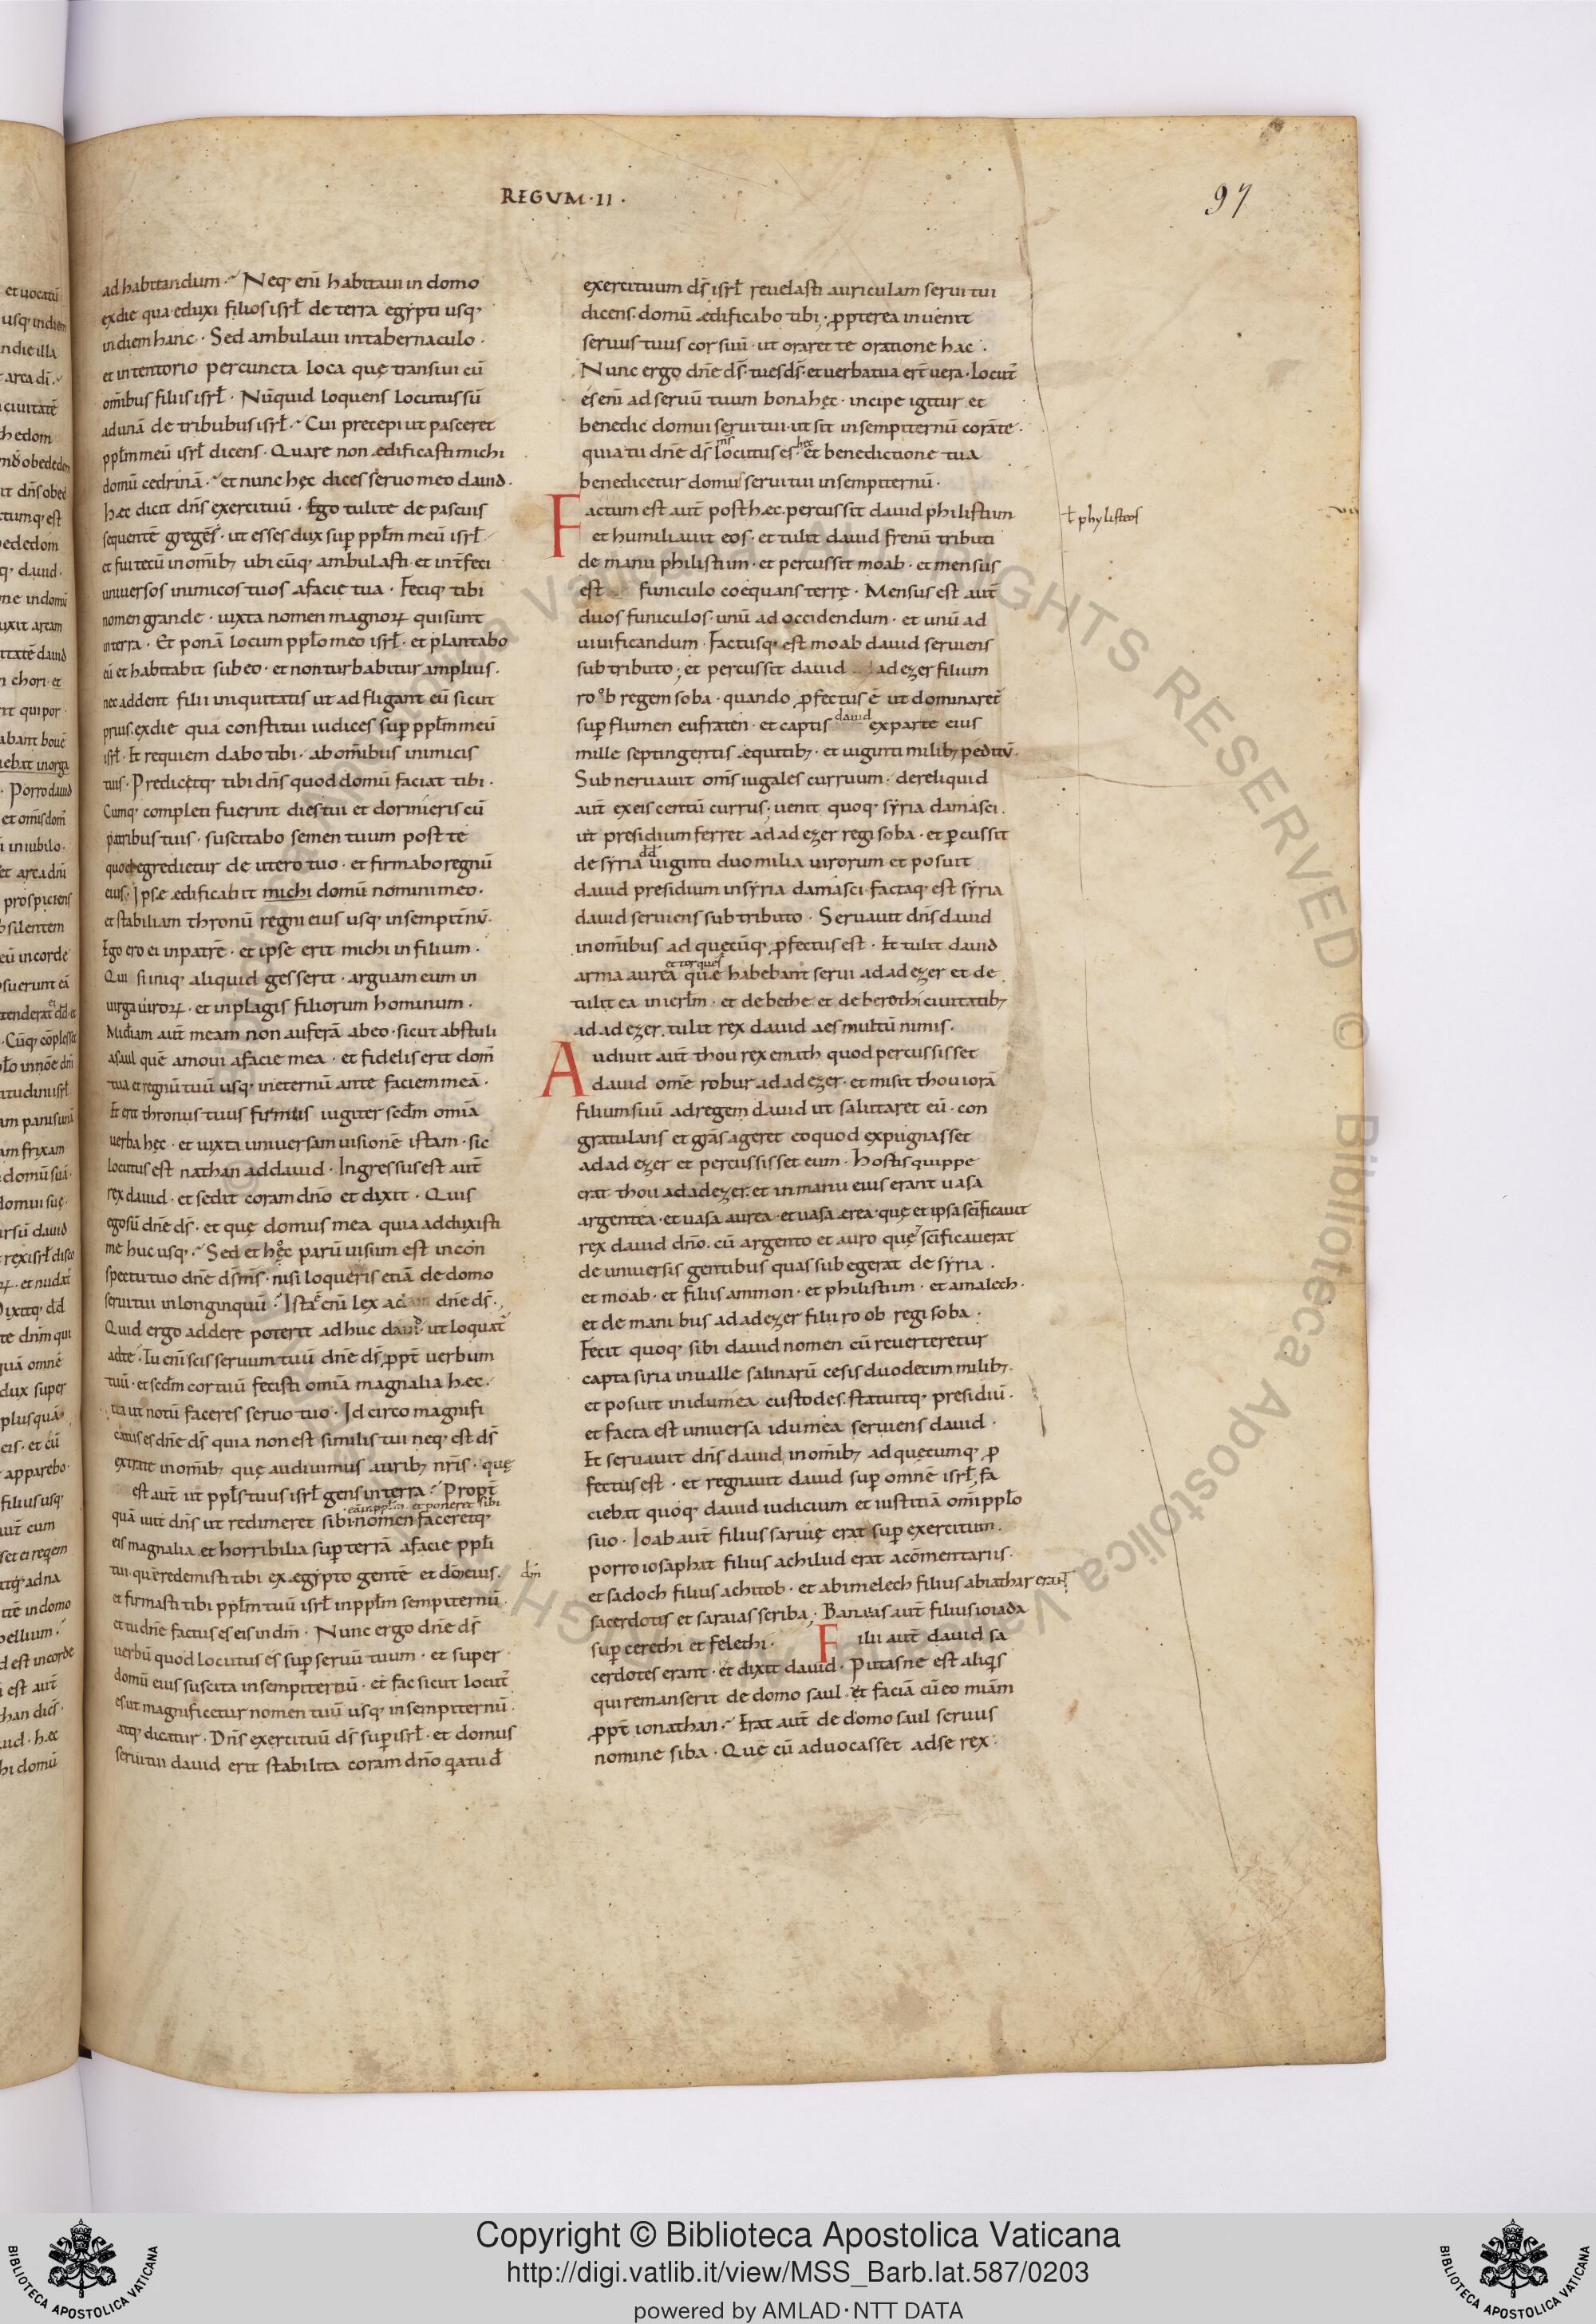 REGUM · II ·
97
ad habitandum · Neq; eni habitaui in domo
ex die qua eduxi filios isrł de terra egypti usq;
in diem hanc · Sed ambulaui in tabernaculo ·
et in tentorio per cuncta loca quę transiui cū
om̄ibus filiis isrł · Nūquid loquens locutus sū
ad unā de tribubus isrł · Cui precepi ut pasceret
ppłm meū isrł dicens · Quare non ædificasti michi
domū cedrinā · et nunc hęc dices seruo meo dauid ·
hæc dicit dn̄s exercituū · Ego tuli te de pascuis
sequentē greges · ut esses dux sup ppłm meū isrł
et fui tecū in om̄ib; ubicūq; ambulasti · et interfeci
uniuersos inimicos tuos a facie tua · Feciq; tibi
nomen grande · iuxta nomen magnoꝝ qui sunt
in terra · Et ponā locum ppło meo isrł · et plantabo
eū et habitabit sub eo · et non turbabitur amplius ·
nec addent filii iniquitatis ut adfligant eū sicut
prius · ex die qua constitui iudices sup ppłm meū
isrł · Et requiem dabo tibi · ab om̄ibus inimicis
tuis · Predicetq; tibi dn̄s quod domū faciat tibi ·
Cumq; completi fuerint dies tui et dormieris cū
patribus tuis · suscitabo semen tuum post te
quod egredietur de utero tuo · et firmabo regnū
eius · Ipse ædificabit michi domū nomini meo ·
et stabiliam thronū regni eius usq; in sempit̄nū ·
Ego ero ei in patrē · et ipse erit michi in filium ·
Qui si iniq; aliquid gesserit · arguam eum in
uirga uiroꝝ · et in plagis filiorum hominum ·
Mīdiam aut̄ meam non auferā ab eo · sicut abstuli
a saul quē amoui a facie mea · et fidelis erit dom̄
tua et regnū tuū usq; in eternū ante faciem meā ·
Et erit thronus tuus firmus iugiter scdm omīa
uerba hęc · et iuxta uniuersam uisionē istam · sic
locutus est nathan ad dauid · Ingressus est aut̄
rex dauid · et sedit coram dn̄o et dixit · Quis
ego sū dn̄e ds̄ · et quę domus mea quia adduxisti
me huc usq; · Sed et hoc parū uisum est in con
spectu tuo dn̄e ds̄ m̄s · nisi loquēris etiā de domo
serui tui in longinquū · Ista ē eni lex adam dn̄e ds̄ ·
Quid ergo addere poterit adhuc dauid · ut loquat̄
ad te · Tu eni scis seruum tuū dn̄e ds̄ ppt̄ uerbum
tuū · et scdm cor tuū fecisti omīa magnalia hæc ·
ita ut notū faceres seruo tuo · Id circo magnifi
catus es dn̄e ds̄ quia non est similis tui neq; est ds̄
extra te in om̄ib; quę audiuimus aurib; nr̄is · quę
est aut̄ ut ppłs tuus isrł gens in terra · Propt̄
eā in ppłm · et poneret sibi
quā iuit dn̄s ut redimeret sibi · nomen faceretq;
eis magnalia et horribilia sup terrā a facie ppłi
tui · quē redemisti tibi ex ægypto gentē et dō eius · dm̄
et firmasti tibi ppłm tuū isrł in ppłm sempiternū ·
et tu dn̄e factus es eis in dm̄ · Nunc ergo dn̄e ds̄
uerbū quod locutus es sup seruū tuum · et super
domū eius suscita in sempiternū · et fac sicut locut̄
es ut magnificetur nomen tuū usq; in sempiternū ·
atq; dicatur · Dn̄s exercituū ds̄ sup isrł · et domus
serui tui dauid erit stabilita coram dn̄o q̄a tu d̄s
exercituum ds̄ isrł reuelasti auriculam serui tui
dicens · domū ædificabo tibi · ppterea inuenit
seruus tuus cor suū · ut oraret te oratione hac ·
Nunc ergo dn̄e ds̄ · tu es ds̄ · et uerba tua erт̄ uera · Locut̄
es eni ad seruū tuum bona hęc · incipe igitur et
benedic domui serui tui · ut sit in sempiternū corā te ·
quia tu dn̄e ds̄ m̄s locutus es · hęc et benedictione tua
benedicetur domui serui tui in sempiternū ·
Factum est aut̄ post hæc · percussit dauid philistiim
ł phylisteos
et humiliauit eos · et tulit dauid frenū tributi
de manu philistiim · et percussit moab · et mensus
est funiculo coequans terrę · Mensus est aut̄
duos funiculos · unū ad occidendum · et unū ad
uiuificandum · Factusq; est moab dauid seruiens
sub tributo · et percussit dauid adadezer filium
roob regem soba · quando pfectus ē ut dominaret̄
sup flumen eufraten · et captis dauid ex parte eius
mille septingentis æquitib; · et uiginti milib; peditū ·
Subneruauit om̄s iugales curruum · dereliquid
aut̄ ex eis centū currus · uenit quoq; syria damasci ·
ut presidium ferret adadezer regi soba · et pcussit
de syria dd̄ uiginti duo milia uirorum et posuit
dauid presidium in syria damasci · factaq; est syria
dauid seruiens sub tributo · Seruauit dn̄s dauid
in om̄ibus ad quęcūq; pfectus est · Et tulit dauid
et torques
arma aurea quę habebant serui adadezer et de
tulit ea in ierłm · et de bethe · et de berothi ciuitatib;
adadezer · tulit rex dauid aes multū nimis ·
Audiuit aut̄ thou rex emath quod percussisset
dauid omē robur adadezer · et misit thou iorā
filium suū ad regem dauid ut salutaret eū · con
gratulans et grās ageret eo quod expugnasset
adadezer et percussisset eum · Hostis quippe
erat thou adadezer · et in manu eius erant uasa
argentea · et uasa aurea · et uasa ærea · quę et ipsa scīficauit
rex dauid dn̄o · cū argento et auro quę scīficauerat
de uniuersis gentibus quas subegerat de syria ·
et moab · et filiis ammon · et philistiim · et amalech ·
et de manubus adadezer filii roob regi soba ·
Fecit quoq; sibi dauid nomen cū reuerteretur
capta siria in ualle salinarū cesis duodecim milib; ·
et posuit in idumea custodes · statuitq; presidiū ·
et facta est uniuersa idumea seruiens dauid ·
Et seruauit dn̄s dauid in om̄ib; ad quęcumq; p
fectus est · et regnauit dauid sup omnē isrł · fa
ciebat quoq; dauid iudicium et iustitiā om̄i ppło
suo · Ioab aut̄ filius saruię erat sup exercitum ·
porro iosaphat filius achilud erat a cōmentariis ·
et sadoch filius achitob · et abimelech filius abiathar erant
sacerdotis et saraias scriba · Banaias aut̄ filius ioiada
sup cerethi et felethi · Filii aut̄ dauid sa
cerdotes erant · et dixit dauid · Putasne est aliqs
qui remanserit de domo saul · et faciā cū eo mīam
ppt̄ ionathan · Erat aut̄ de domo saul seruus
nomine siba · Quē cū aduocasset ad se rex ·
Copyright © Biblioteca Apostolica Vaticana
http://digi.vatlib.it/view/MSS_Barb.lat.587/0203
powered by AMLAD · NTT DATA